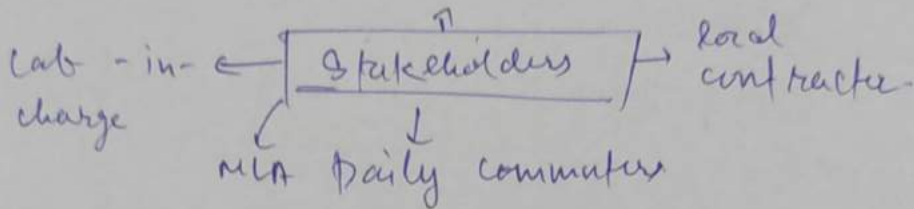 Lab-in-
charge
Stakeholders
Road
contractor
MLA Daily commuters